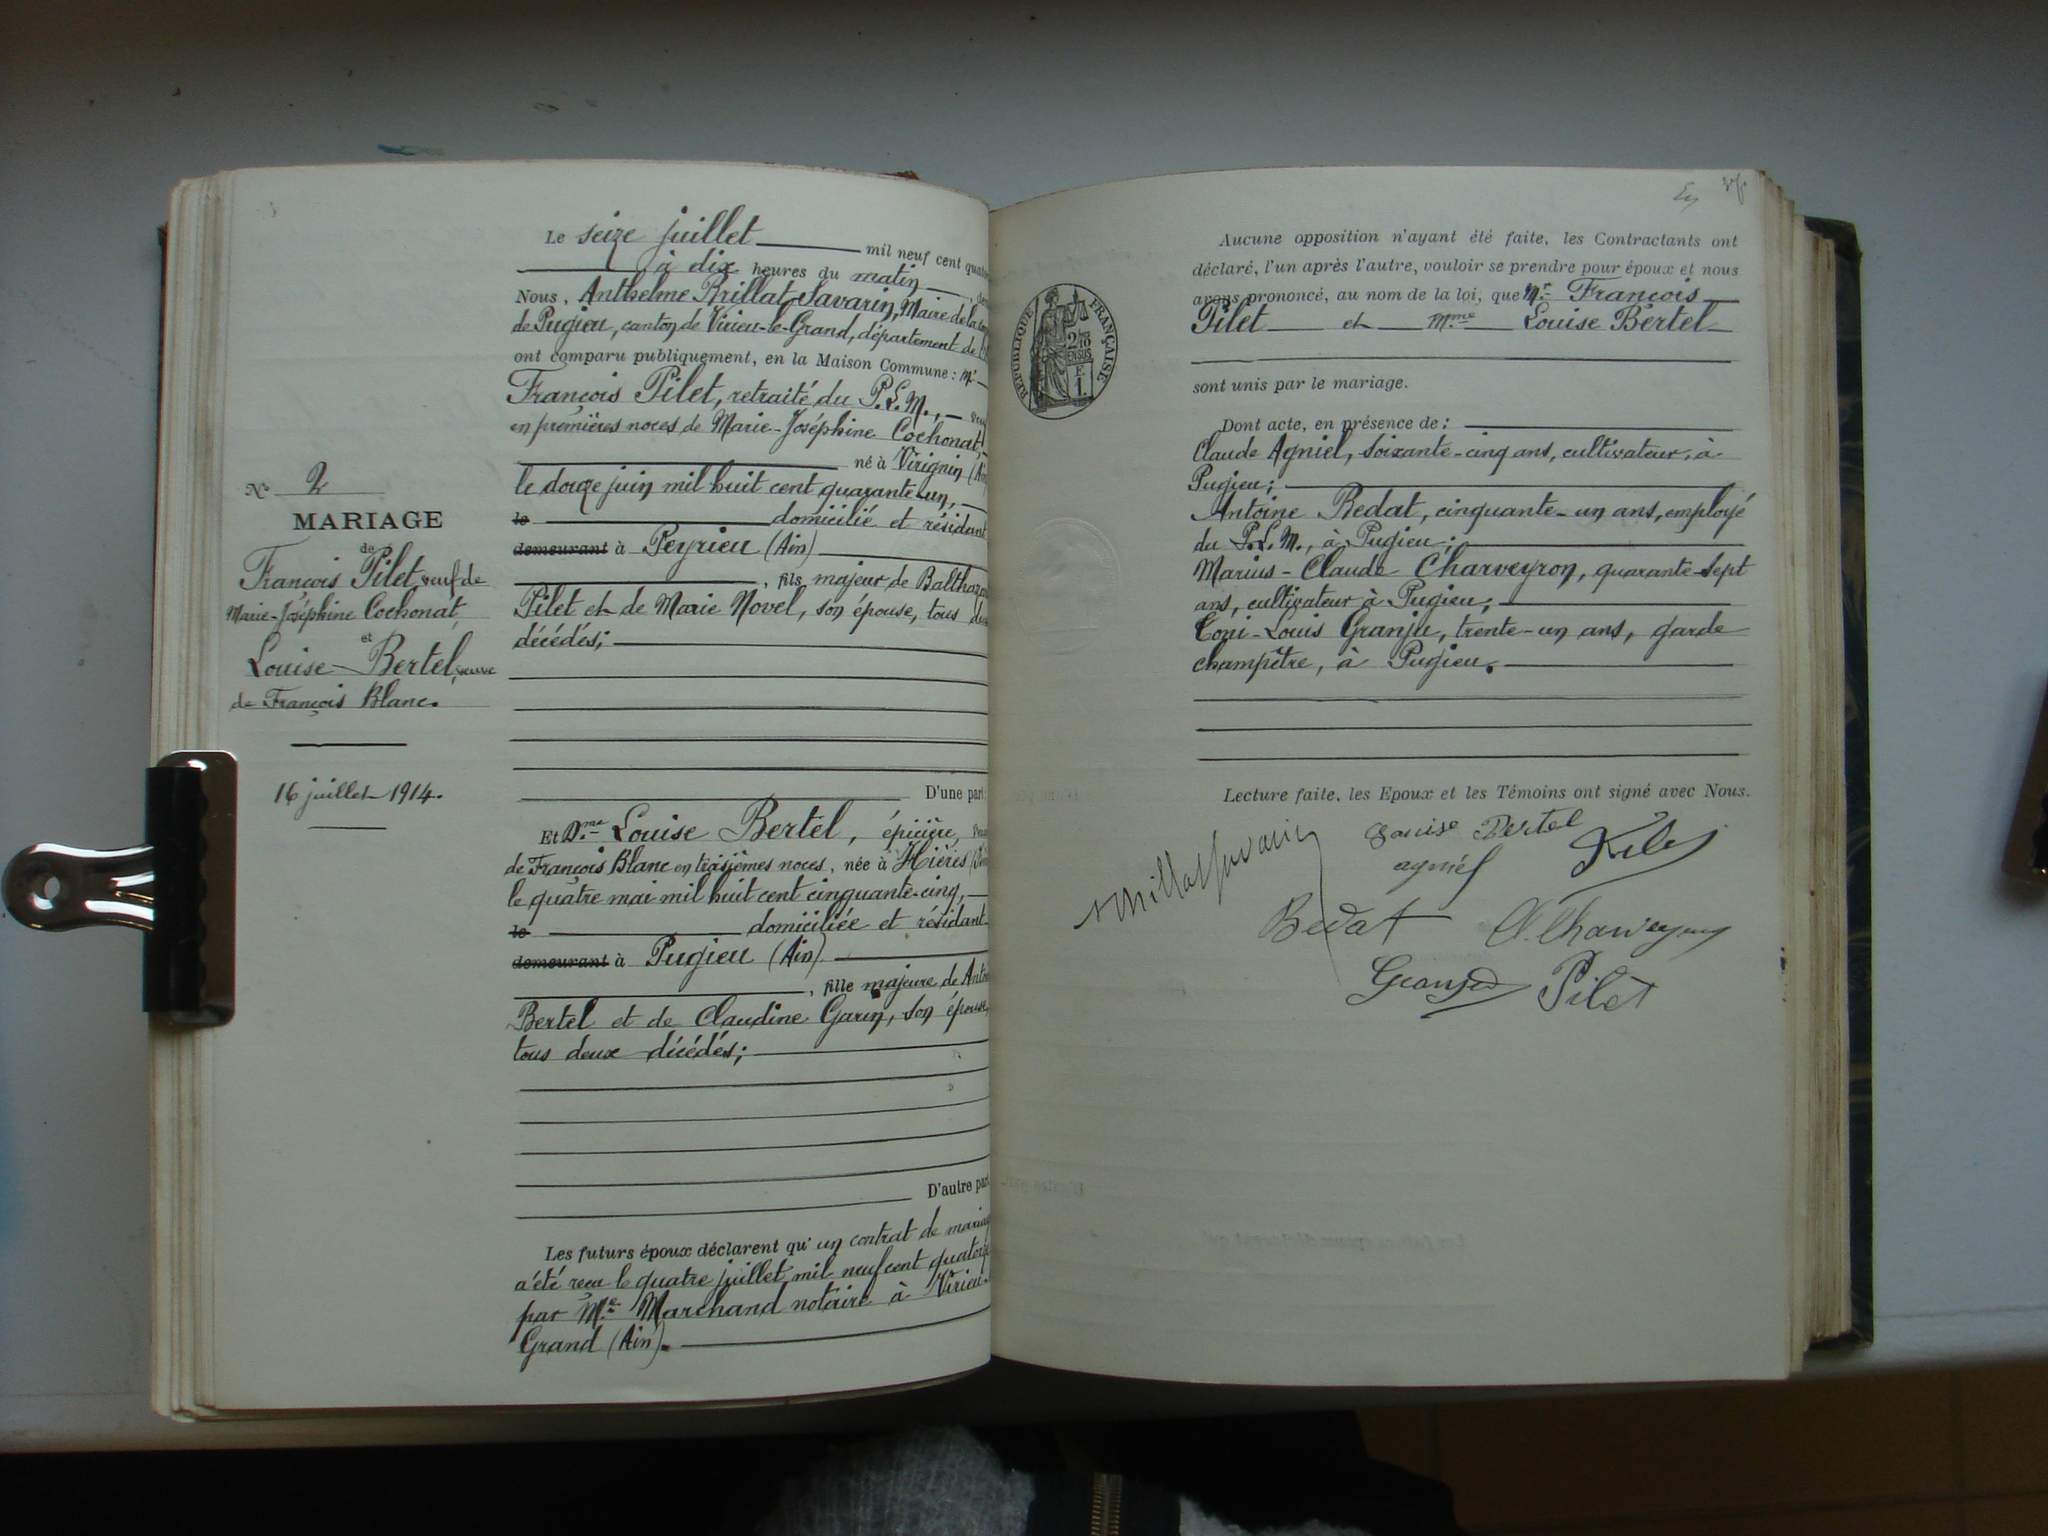 N° 2
MARIAGE
de
François Pilet, veuf de
Marie-Joséphine Cochonat,
et
Louise Bertel, veuve
de François Blanc.
16 juillet 1914.
Le seize juillet mil neuf cent quator
à dix heures du matin
Nous, Anthelme Brillat Savarin, Maire de la
de Pugieu, canton de Virieu-le-Grand, département de
ont comparu publiquement, en la Maison Commune: Mr
François Pilet, retraité du P.L.M., veuf
en premières noces de Marie-Joséphine Cochonat,
né à Virignin (Ain
le douze juin mil huit cent quarante-un,
le domicilié et résidant
demeurant à Peyrieu (Ain)
, fils majeur de Balthazar
Pilet et de Marie Novel, son épouse, tous deux
décédés;
D'une part;
Et Dme Louise Bertel, épicière, veuve
de François Blanc en troisièmes noces, née à Hières
le quatre mai mil huit cent cinquante-cinq,
le domiciliée et résidant
demeurant à Pugieu (Ain)
, fille majeure de Antoi
Bertel et de Claudine Garin, son épouse,
tous deux décédés;
D'autre part
Les futurs époux déclarent qu'un contrat de mariag
a été reçu le quatre juillet mil neuf cent quatorze
par Me Marchand notaire à Virieu-
Grand (Ain).
RÉPUBLIQUE FRANÇAISE
2/10
EN SUS
E
1.
Aucune opposition n'ayant été faite, les Contractants ont
déclaré, l'un après l'autre, vouloir se prendre pour époux et nous
avons prononcé, au nom de la loi, que Mr François
Pilet et Mme Louise Bertel
sont unis par le mariage.
Dont acte, en présence de:
Claude Agniel, soixante-cinq ans, cultivateur, à
Pugieu;
Antoine Bedat, cinquante-un ans, employé
du P.L.M., à Pugieu;
Marius-Claude Charveyron, quarante-sept
ans, cultivateur à Pugieu;
Toni-Louis Granju, trente-un ans, garde
champêtre, à Pugieu.
Lecture faite, les Epoux et les Témoins ont signé avec Nous.
Louise Bertel
Brillat Savarin
agniel
Bedat
Charveyron
Granju Pilet